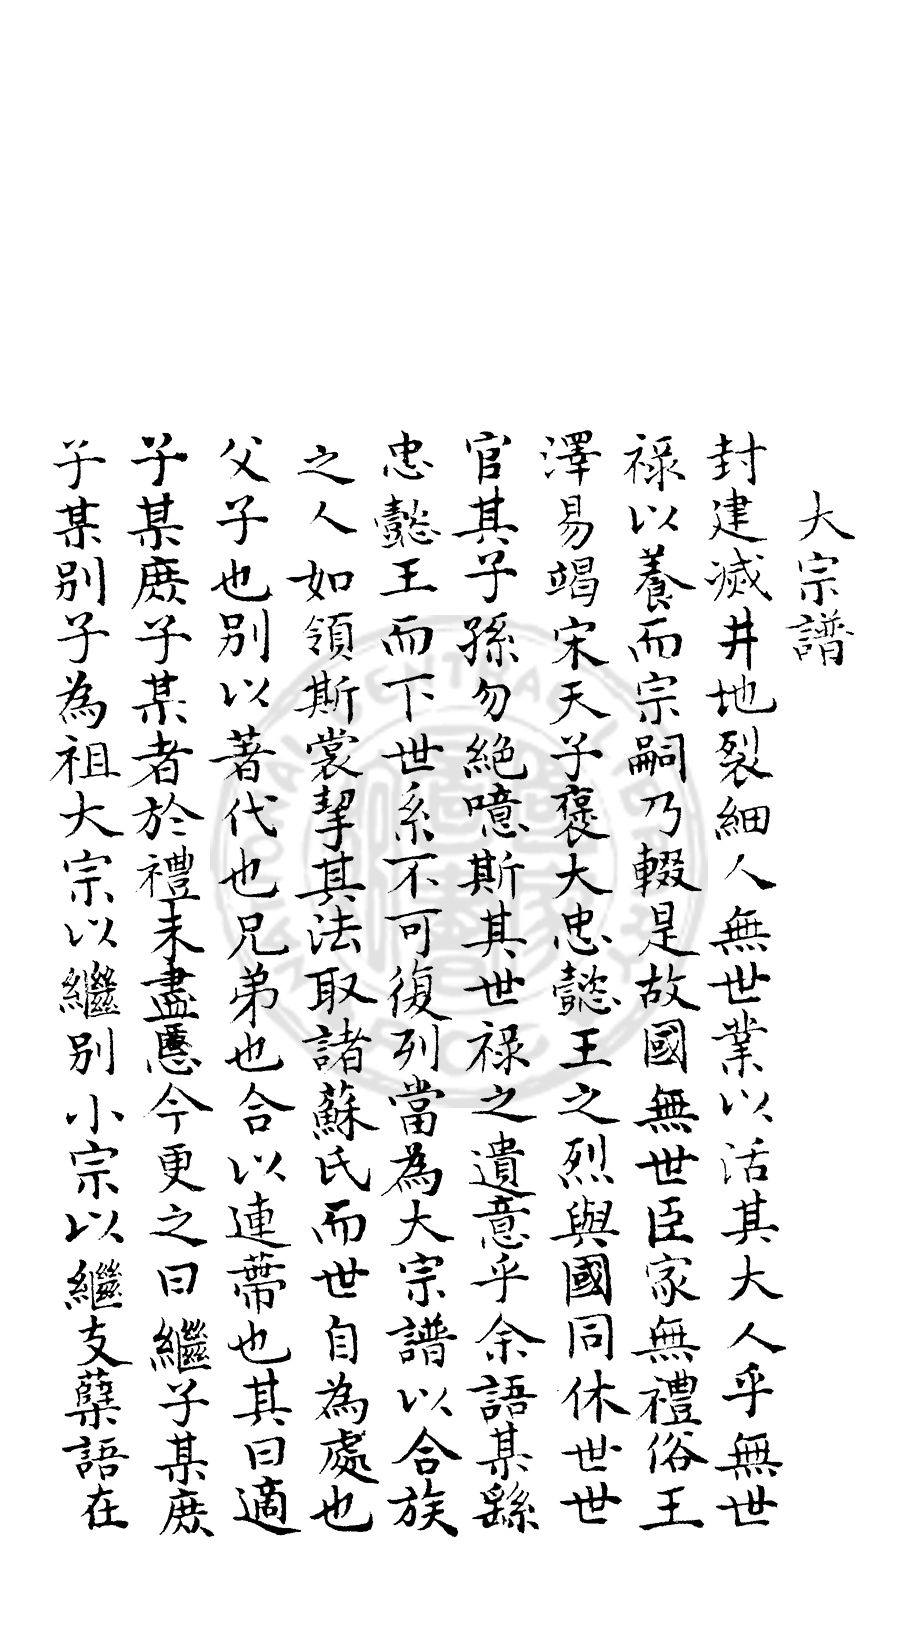 大宗譜
封建滅井地裂細人無世業以活其大人乎無世
祿以養而宗嗣乃輟是故國無世臣家無禮俗王
澤易竭宋天子褒大忠懿王之烈與國同休世世
官其子孫勿絕噫斯其世祿之遺意乎余語某繇
忠懿王而下世系不可復列當為大宗譜以合族
之人如領斯裳挈其法取諸蘇氏而世自為處也
父子也別以著代也兄弟也合以連蔕也其曰適
子某庶子某者於禮未盡慝今更之曰繼子某庶
子某別子為祖大宗以繼別小宗以繼支孽語在